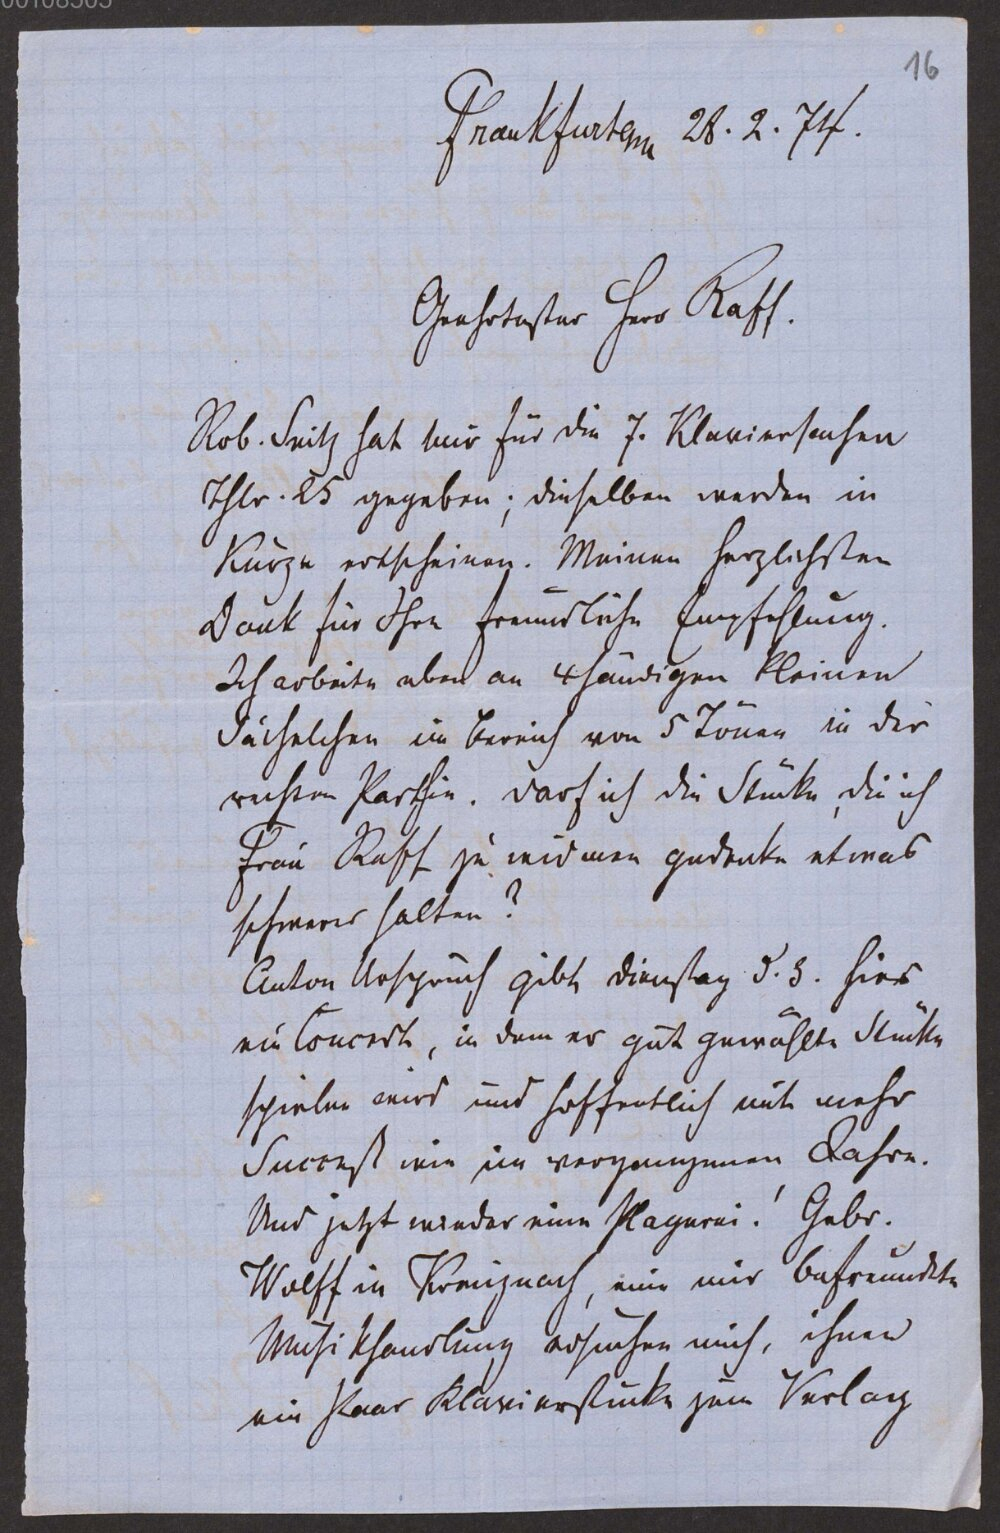 16
Frankfurt a/m 28. 2. 74.
Geehrtester Herr Raff.
Rob. Seitz hat mir für die 7. Klaviersachen
Thlr. 25 gegeben; dieselben werden in
Kürze erscheinen. Meinen herzlichsten
Dank für Ihre freundliche Empfehlung.
Ich arbeite eben an 4händigen kleinen
Sächelchen im Bereich von 5 Tönen in der
rechten Parthie. Darf ich die Stücke, die ich
Frau Raff zu widmen gedenke etwas
schwerer halten?
Anton Urspruch gibt Dienstag d. 3. hier
ein Concert, in dem er gut gewählte Stücke
spielen wird und hoffentlich mit mehr
Succeß wie im vergangenen Jahre.
Und jetzt wieder eine Plagerei! Gebr.
Wolff in Kreuznach, eine mir befreundete
Musikhandlung ersuchen mich, ihnen
ein Paar Klavierstücke zum Verlag